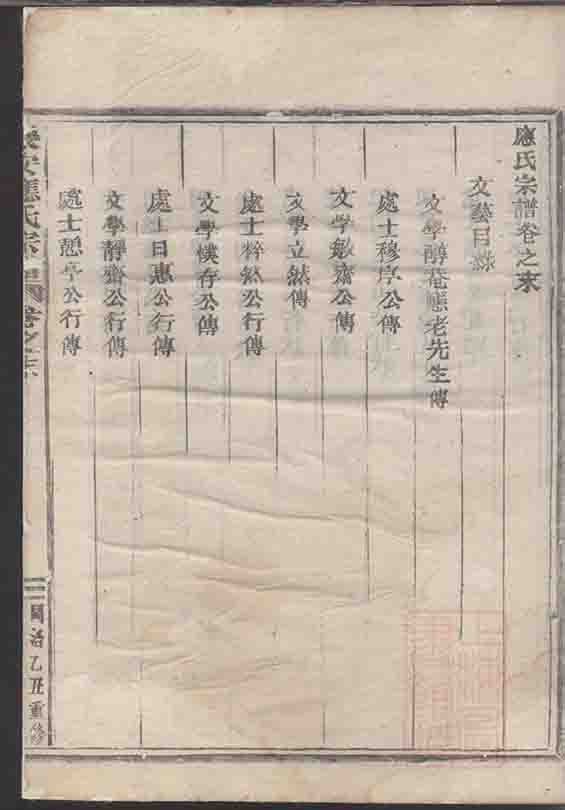 應氏宗譜卷之末
文藝目錄
文學醇菴應老先生傳
處士穆序公傳
文學敏齋公傳
文學立然傳
處士粹然公行傳
文學樸存公傳
處士日惠公行傳
文學靜齋公行傳
處士憩亭公行傳
應氏宗譜 卷之末
同治乙丑重修